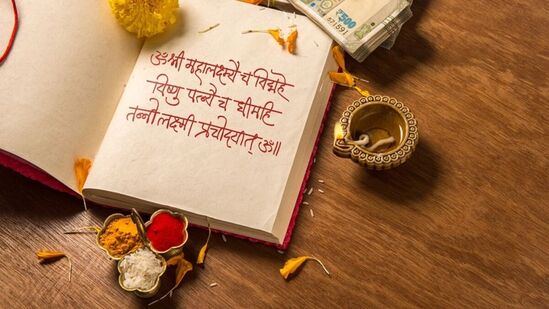 ₹500
ॐ श्री महालक्ष्म्यै च विद्महे
विष्णु पत्न्यै च धीमहि
तन्नो लक्ष्मी प्रचोदयात् ॐ॥